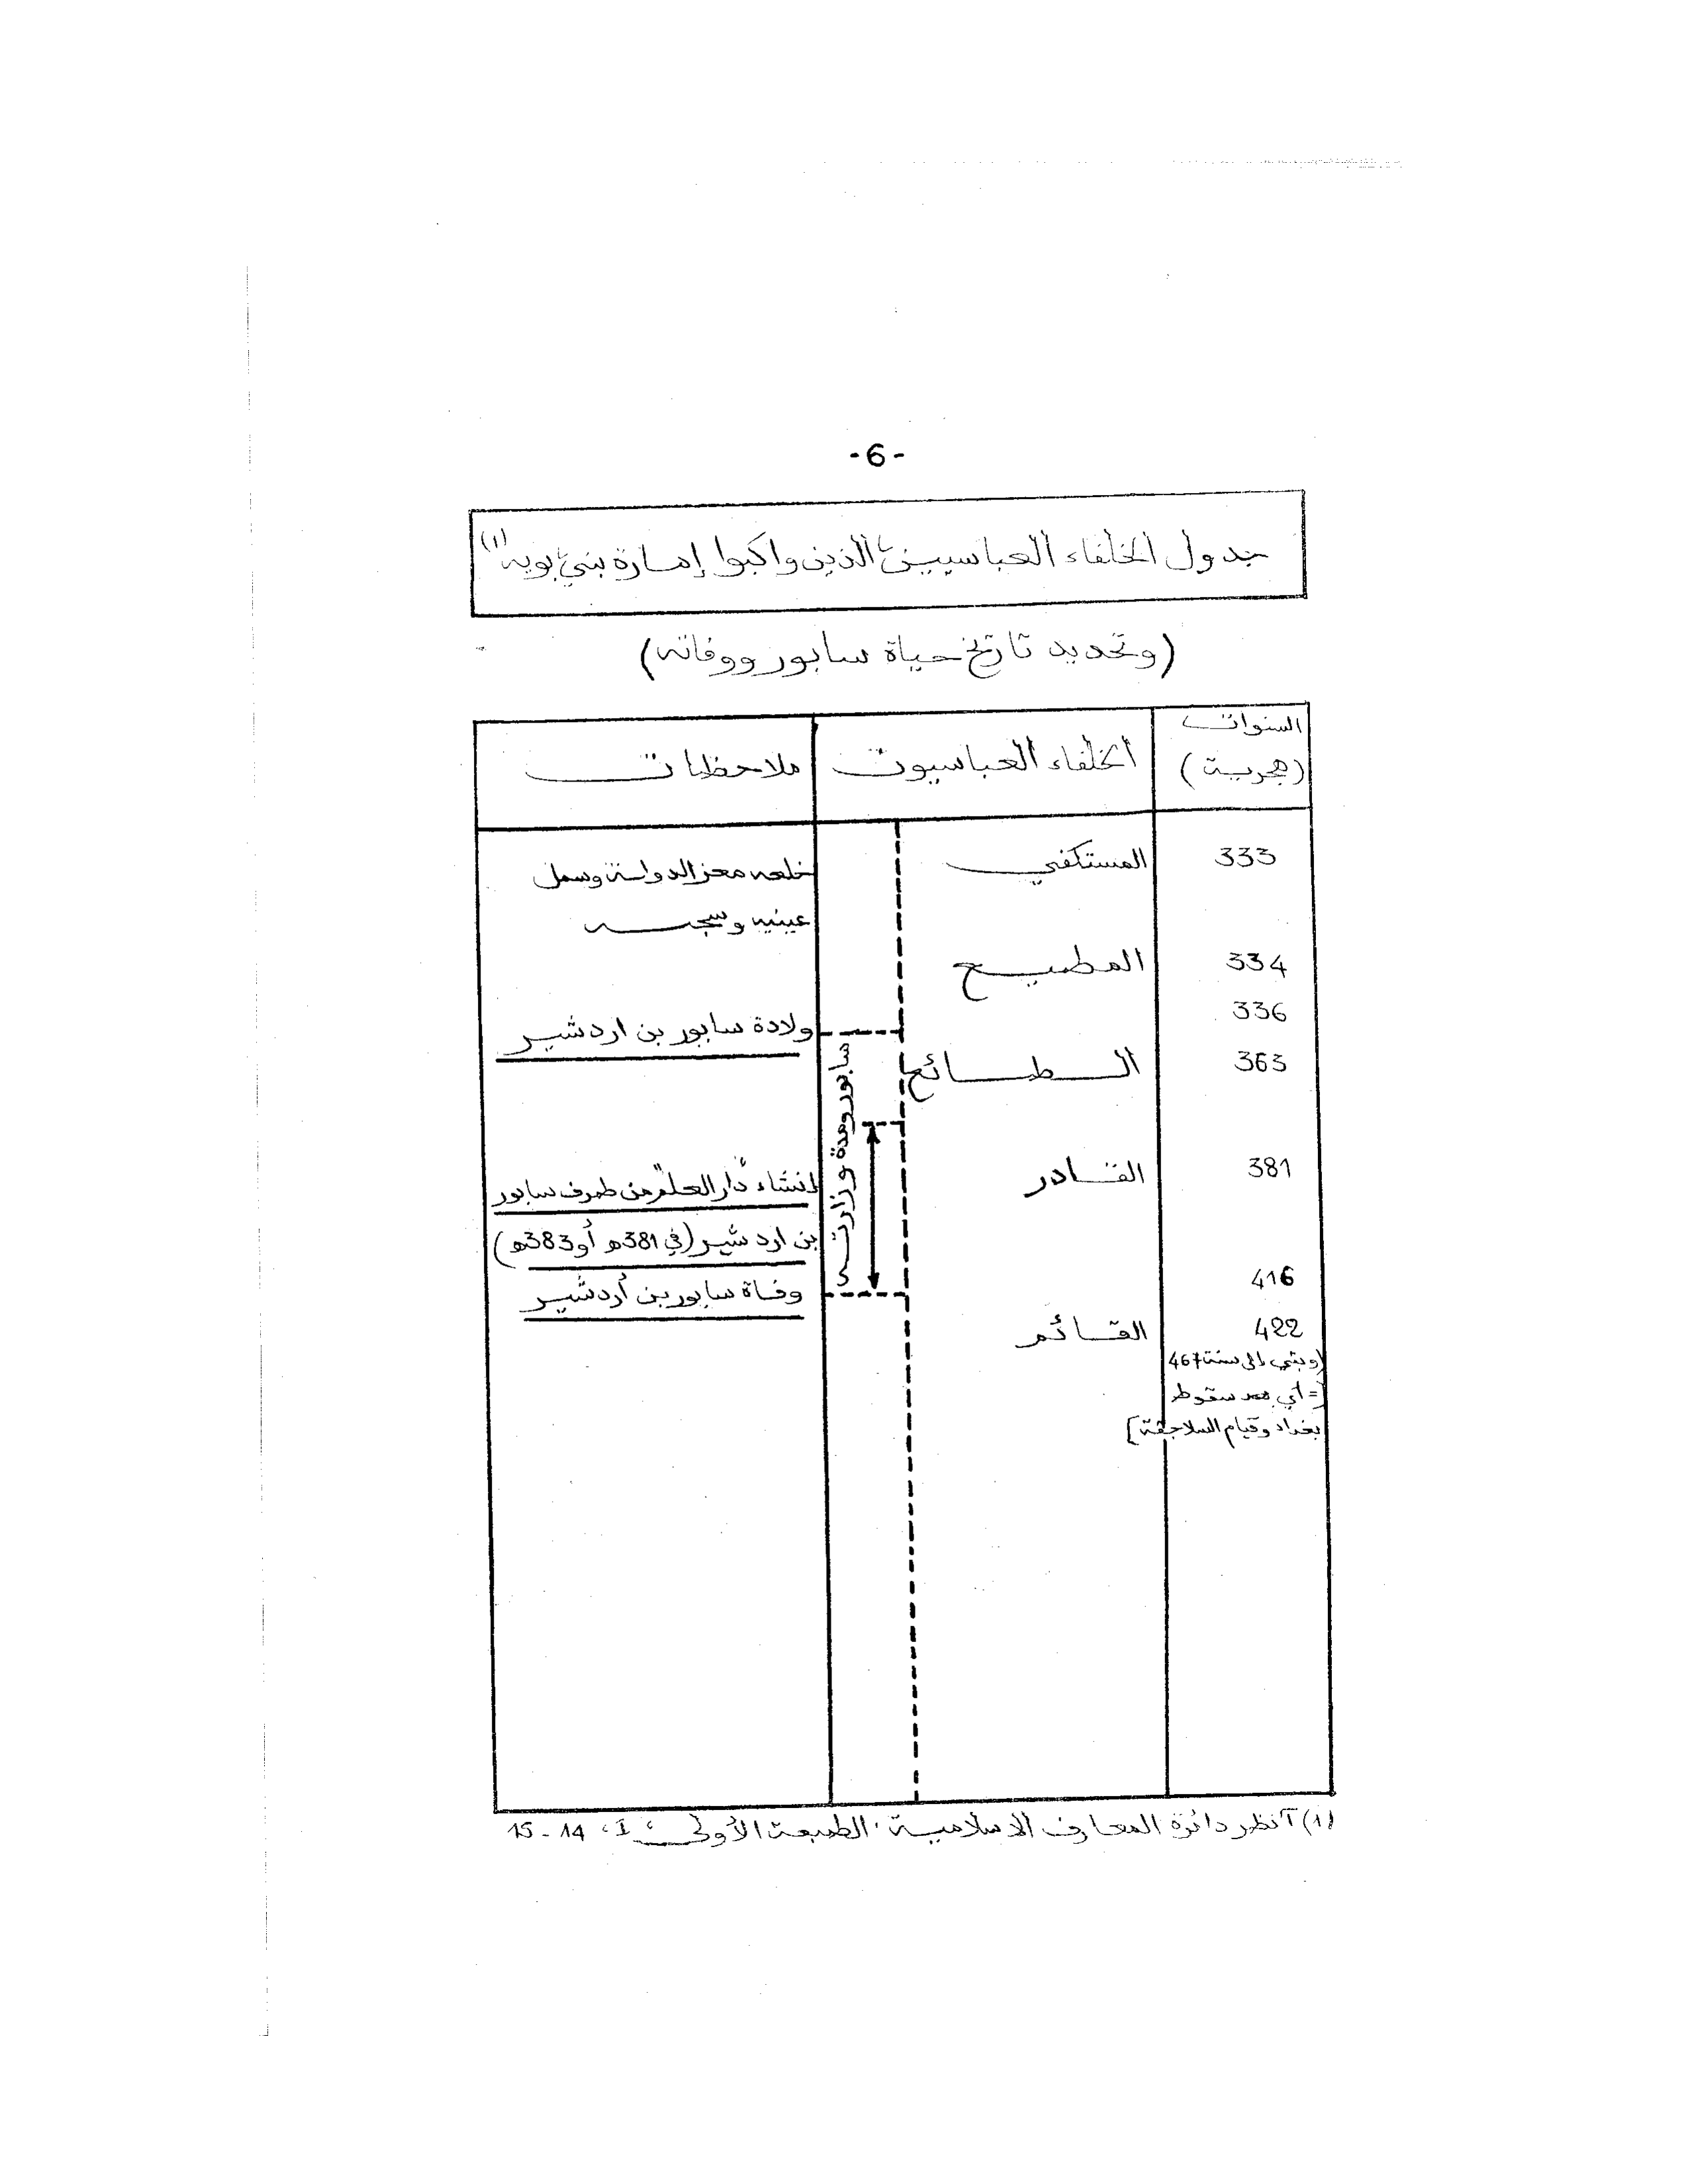 -6-
جدول الخلفاء العباسيين الذين واكبوا إمارة بني بويه (1)
(وتحديد تاريخ حياة سابور ووفاته)
السنوات (هجرية)
الخلفاء العباسيون
ملاحظات
333
المستكفي
خلعه معز الدولة وسمل
عينيه وسجنه
334
المطيع
336
ولادة سابور بن اردشير
363
الطائع
سابور ومدة وزارته
381
القادر
إنشاء "دار العلم" من طرف سابور
بن اردشير (في 381ه أو 383ه)
416
وفاة سابور بن أردشير
422
القائم
(وبقي إلى سنة 467
[= أي بعد سقوط
بغداد وقيام السلاجقة]
(1) آنظر دائرة المعارف الاسلامية، الطبعة الأولى، I، 14 - 15